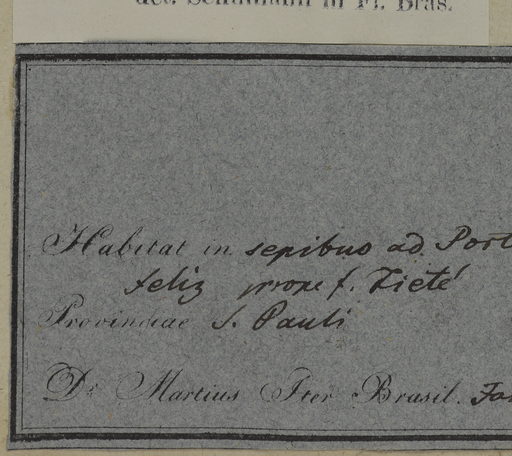 det. Schumann in Fl. Bras.
Habitat in sepibus ad Port
feliz prope f. Tieté
Provinciae S. Pauli
Dr. Martius Iter Brasil.